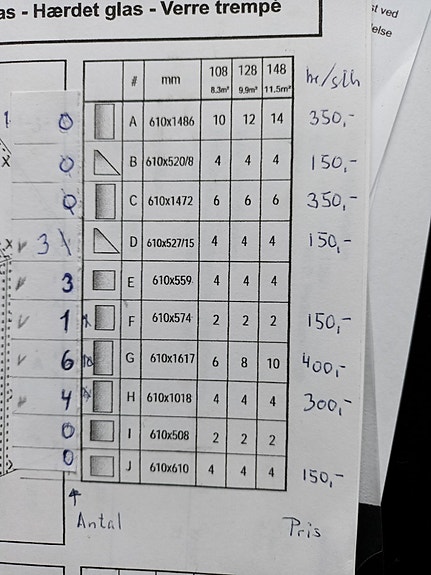 as - Hærdet glas - Verre trempé
st ved
else
# mm 108 128 148 kr/stk
8.3m² 9.9m² 11.5m²
0 A 610x1486 10 12 14 350,-
0 B 610x520/8 4 4 4 150,-
0 C 610x1472 6 6 6 350,-
3 D 610x527/15 4 4 4 150,-
3 E 610x559 4 4 4
1 F 610x574 2 2 2 150,-
6 G 610x1617 6 8 10 400,-
4 H 610x1018 4 4 4 300,-
0 I 610x508 2 2 2
0 J 610x610 4 4 4 150,-
Antal Pris